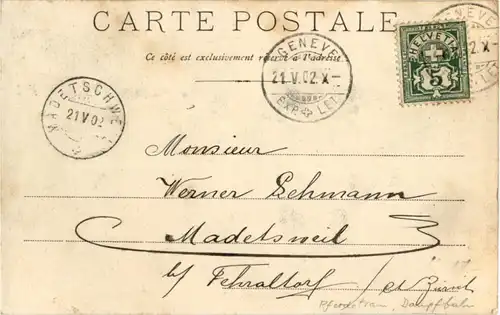 CARTE POSTALE
Ce côté est exclusivement réservé à l'adresse.
GENEVE
21.V.02.X-
EXP. LET.
HELVETIA
5
GENEVE
02.X
MADETSCHWEIL
21 V 02
Monsieur
Werner Lehmann
Madetsweil
b/ Fehraltorf / ct Zürich
Pferdetram, Dampfbahn